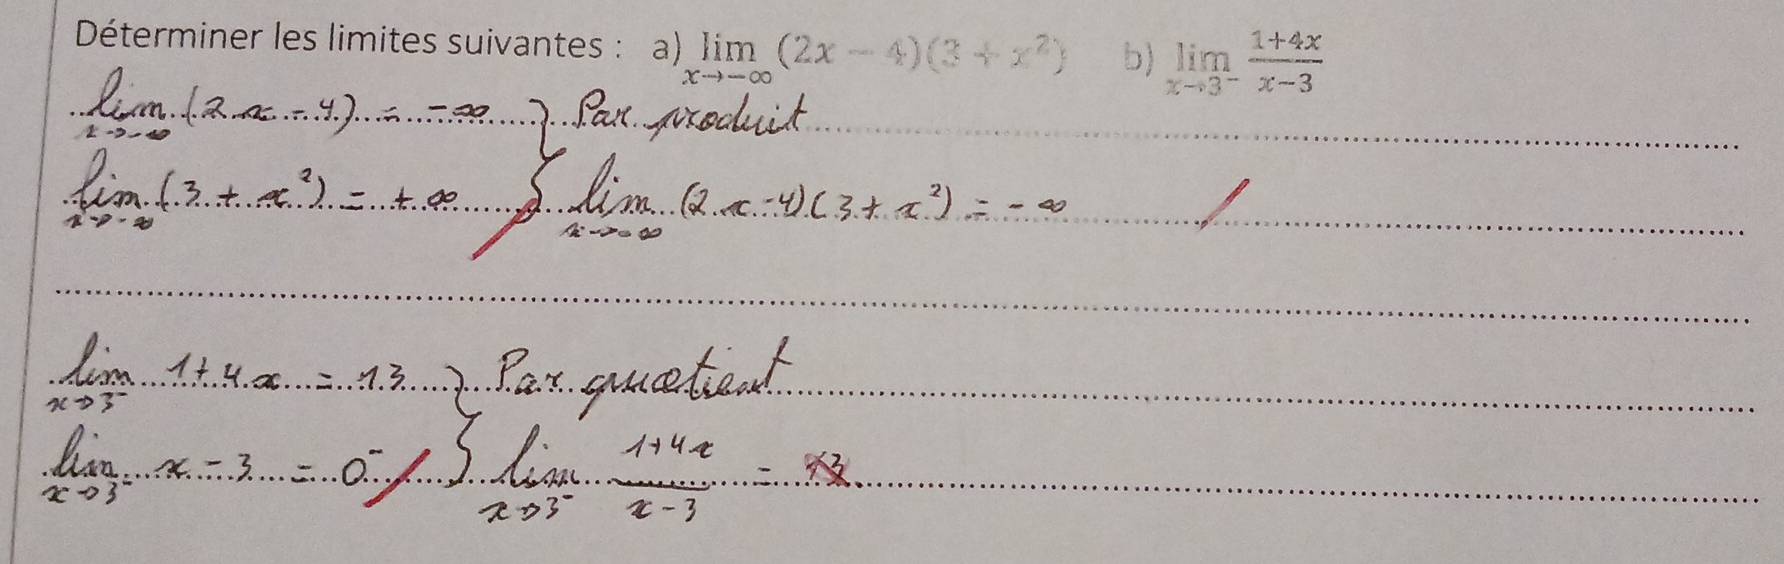 Déterminer les limites suivantes : a) lim x→−∞ (2x − 4)(3 + x²) b) lim x→3⁻ (1+4x)/(x−3)
lim x→−∞ (2x − 4) = −∞ } Par produit
lim x→−∞ (3 + x²) = +∞ } lim x→−∞ (2x−4)(3+x²) = −∞
lim x→3⁻ 1+4x = 13 } Par quotient
lim x→3⁻ x−3 = 0⁻ } lim x→3⁻ (1+4x)/(x−3) = 13